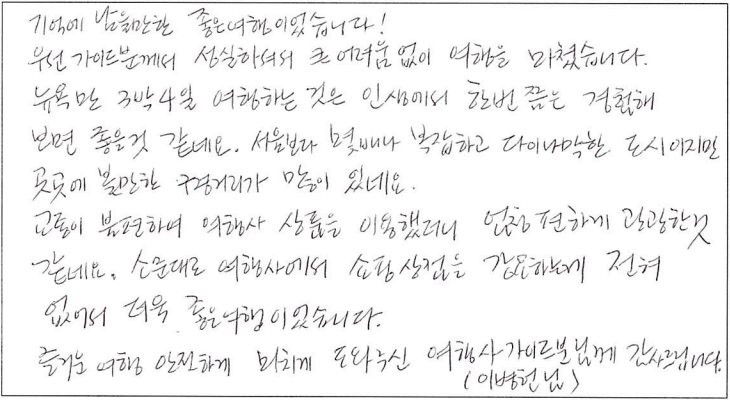 기억에 남을만한 좋은여행이었습니다!
우선 가이드분께서 성실하셔서 큰 어려움 없이 여행을 마쳤습니다.
뉴욕만 3박4일 여행하는 것은 인생에서 한번쯤은 경험해
보면 좋을것 같네요. 서울보다 몇배나 복잡하고 다이나믹한 도시이지만
곳곳에 볼만한 구경거리가 많이 있네요.
교통이 불편하여 여행사 상품을 이용했더니 엄청 편하게 관광한것
같네요. 소문대로 여행사에서 쇼핑상점을 강요하는게 전혀
없어서 더욱 좋은여행이었습니다.
즐거운 여행 안전하게 마치게 도와주신 여행사가이드분님께 감사드립니다.
(이병헌님)